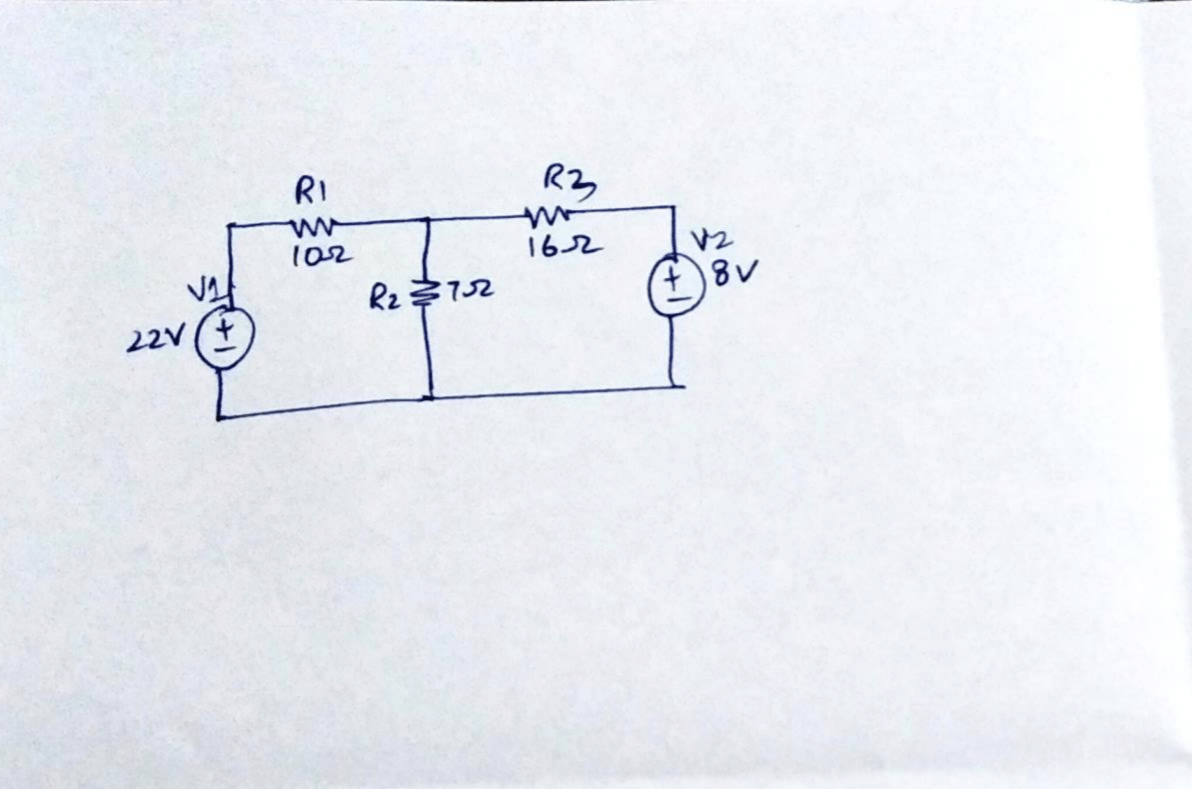 R1
10Ω
R3
16Ω
V1
22V
+
−
R2
7Ω
V2
8V
+
−